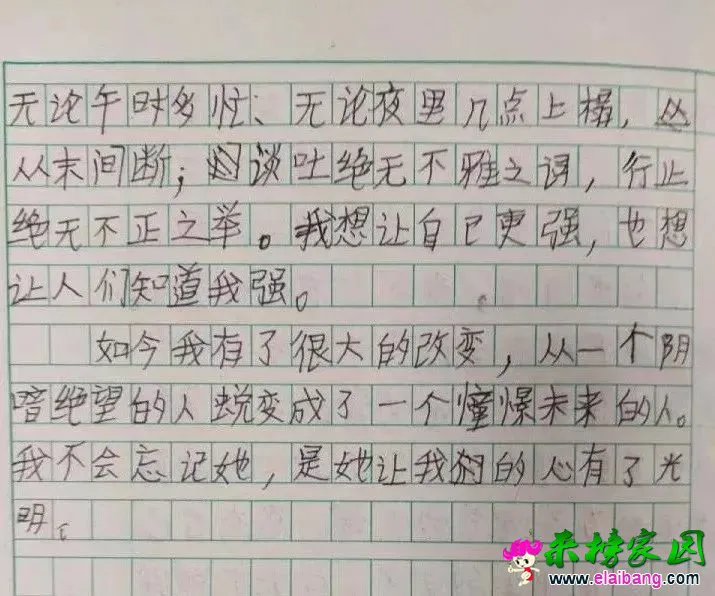 无论午时多忙、无论夜里几点上榻，
从未间断；谈吐绝无不雅之词，行止
绝无不正之举。我想让自己更强，也想
让人们知道我强。
如今我有了很大的改变，从一个阴
暗绝望的人蜕变成了一个憧憬未来的人。
我不会忘记她，是她让我的心有了光
明。
来榜家园
www.elaibang.com